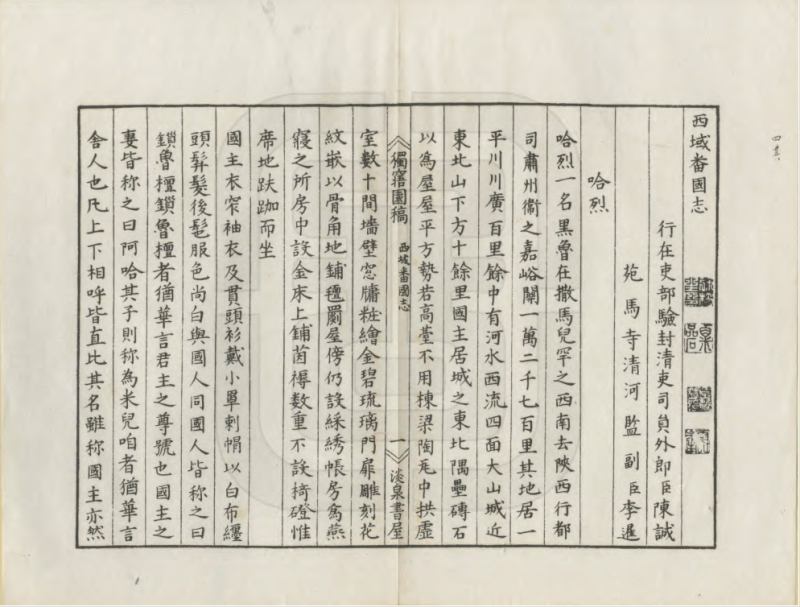 西域番國志
行在吏部驗封清吏司員外郎臣陳誠
苑馬寺清河監副臣李暹
哈烈
哈烈一名黑魯在撒馬兒罕之西南去陝西行都
司肅州衞之嘉峪關一萬二千七百里其地居一
平川川廣百里餘中有河水西流四面大山城近
東北山下方十餘里國主居城之東北隅壘磚石
以為屋屋平方勢若高臺不用棟梁陶瓦中拱虛
獨寤園稿 西域番國志 一 淡泉書屋
室數十間墻壁窓牗粧繪金碧琉璃門扉雕刻花
紋嵌以骨角地鋪氊罽屋傍仍設綵綉帳房為燕
寢之所房中設金床上鋪茵褥數重不設椅磴惟
席地趺跏而坐
國主衣窄袖衣及貫頭衫戴小單剌帽以白布纒
頭髡髮後髢服色尚白與國人同國人皆称之曰
鎖魯檀鎖魯檀者猶華言君主之尊號也國主之
妻皆称之曰阿哈其子則称為米兒咱者猶華言
舍人也凡上下相呼皆直比其名雖称國主亦然